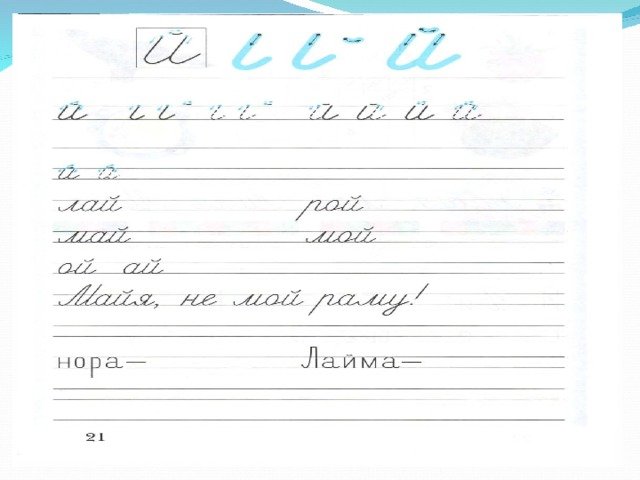 й й
й й й й й
й й
лай рой
май мой
ой ай
Майя, не мой раму!
нора— Лайма—
21